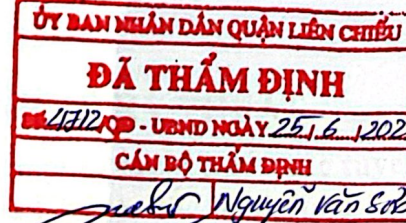 ỦY BAN NHÂN DÂN QUẬN LIÊN CHIỂU
ĐÃ THẨM ĐỊNH
Số: 4712/QĐ - UBND NGÀY 25/6/202
CÁN BỘ THẨM ĐỊNH
Nguyễn Văn